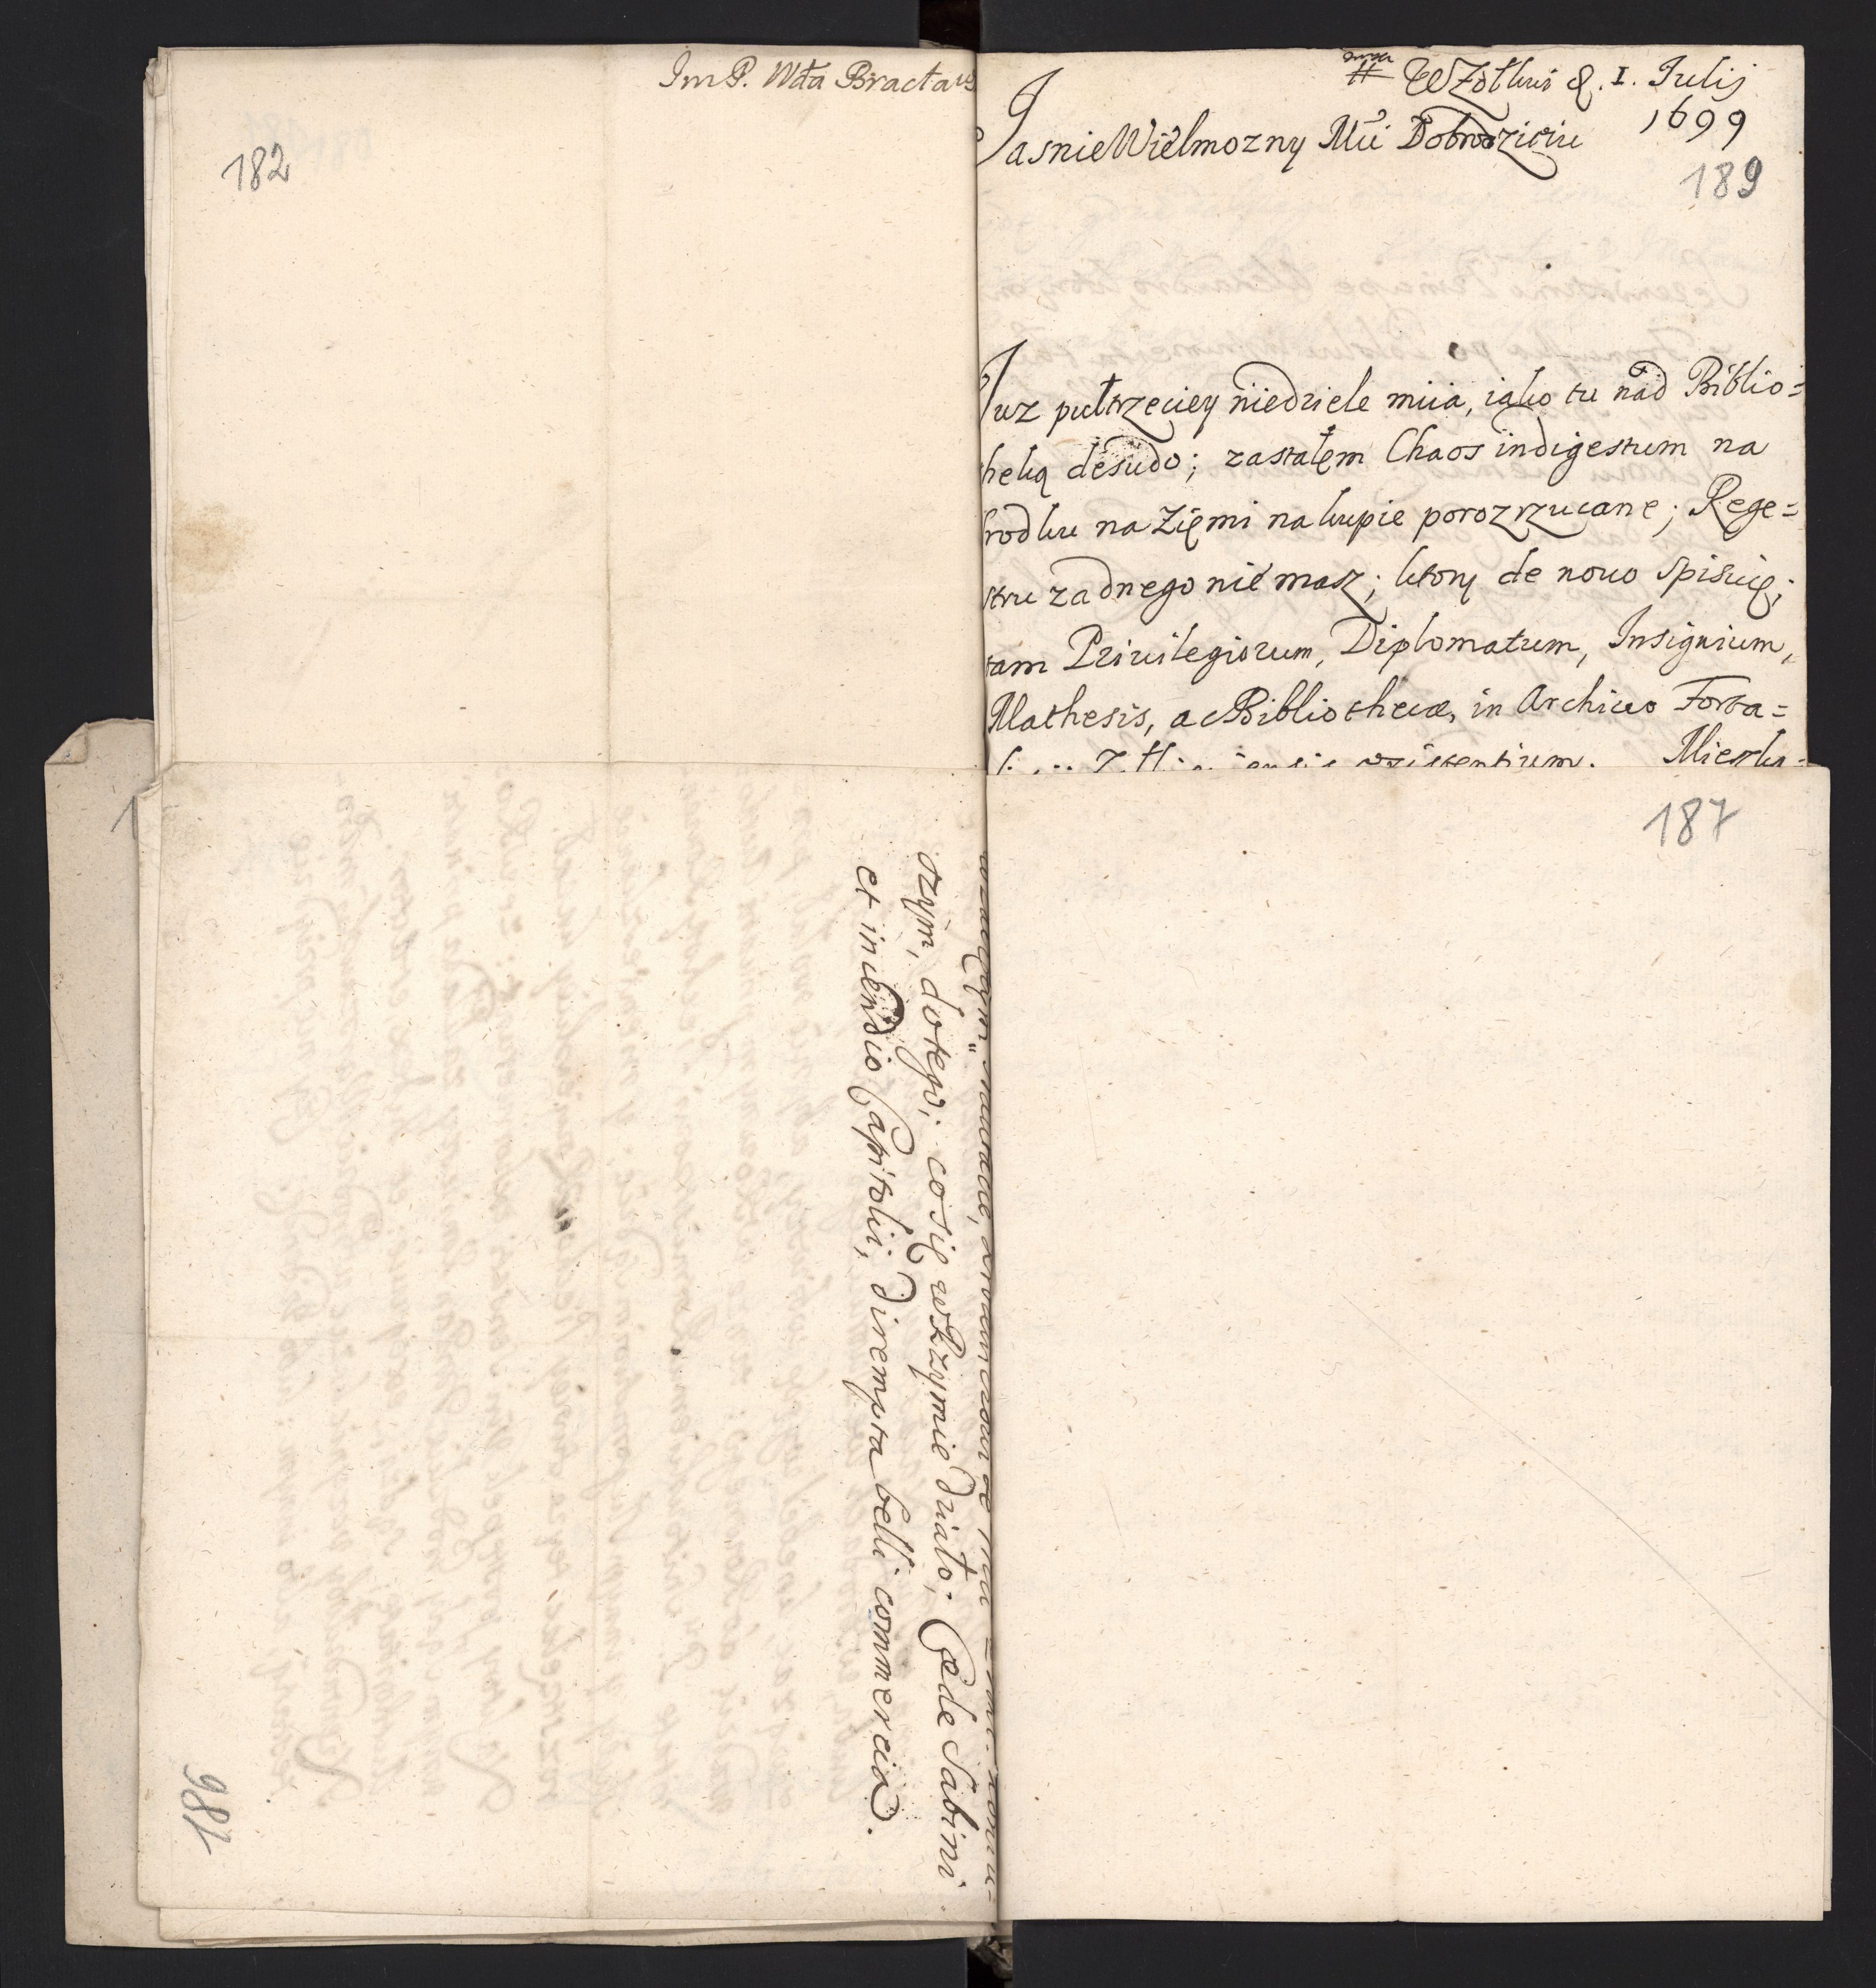 Im P. Wta Bractaw
182
W Zołkwi d. 1. Julij
1699
Jasnie Wielmozny Mći Dobrodzieiu
189
Juz pułtrzeciey niedziele miia, iako tu nad Biblio=
theką desudo; zastałem Chaos indigestum na
srodku na Zięmi na kupie porozrzucane; Rege=
stru zadnego nie masz; ktory de novo spisuię;
tam Privilegiorum, Diplomatum, Insignium,
Mathesis, ac Bibliothecæ, in Archivo Forta=
existentium. Mieszka=
187
dzym, dotego; co się w Rzymie działo; Cæde Sabini
et incendio Capitolii, dirempta belli commercia.
186